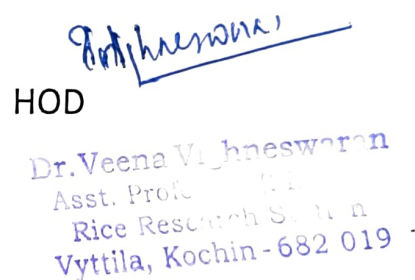 HOD
Dr. Veena Vighneswaran
Asst. Prof.
Rice Research Station
Vyttila, Kochin - 682 019